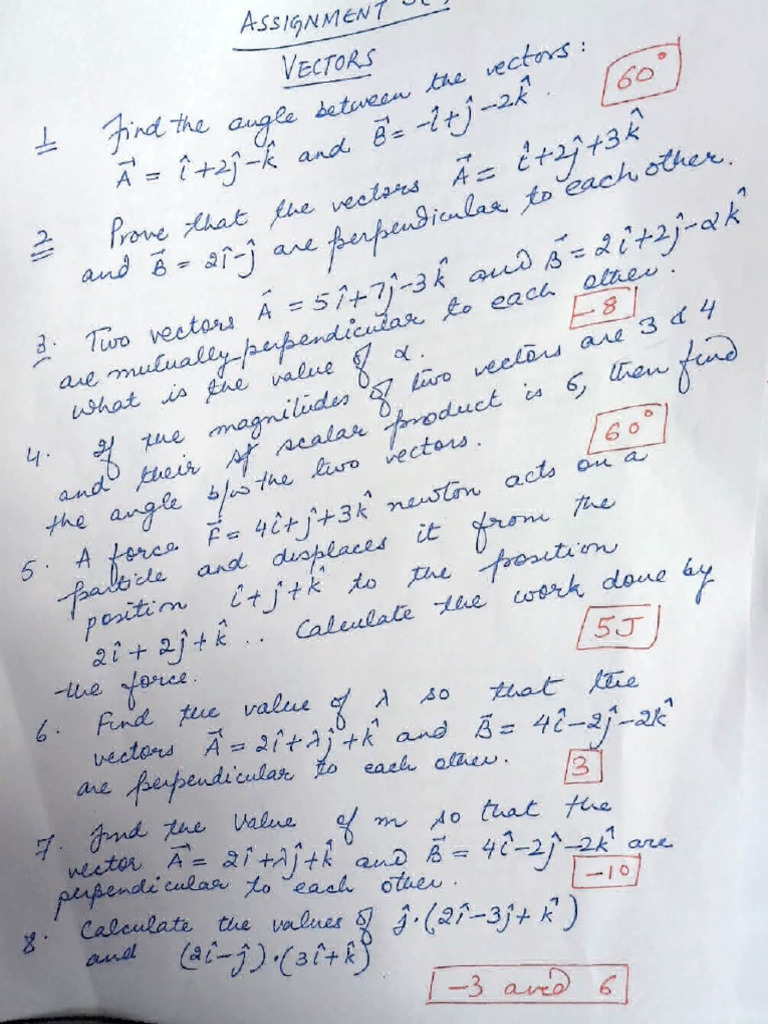 ASSIGNMENT
VECTORS
1 Find the angle between the vectors: 60°
A⃗ = î+2ĵ-k̂ and B⃗ = -î+ĵ-2k̂.
2 Prove that the vectors A⃗ = î+2ĵ+3k̂
and B⃗ = 2î-ĵ are perpendicular to each other.
3. Two vectors A⃗ = 5î+7ĵ-3k̂ and B⃗ = 2î+2ĵ-αk̂
are mutually perpendicular to each other.
What is the value of α. -8
4. If the magnitudes of two vectors are 3 & 4
and their scalar product is 6, then find
the angle b/w the two vectors. 60°
5. A force F⃗ = 4î+ĵ+3k̂ newton acts on a
particle and displaces it from the
position î+ĵ+k̂ to the position
2î+2ĵ+k̂.. Calculate the work done by
the force. 5J
6. Find the value of λ so that the
vectors A⃗ = 2î+λĵ+k̂ and B⃗ = 4î-2ĵ-2k̂
are perpendicular to each other. 3
7. Find the value of m so that the
vector A⃗ = 2î+λĵ+k̂ and B⃗ = 4î-2ĵ-2k̂ are
perpendicular to each other. -10
8. Calculate the values of ĵ.(2î-3ĵ+k̂)
and (2î-ĵ).(3î+k̂)
-3 and 6